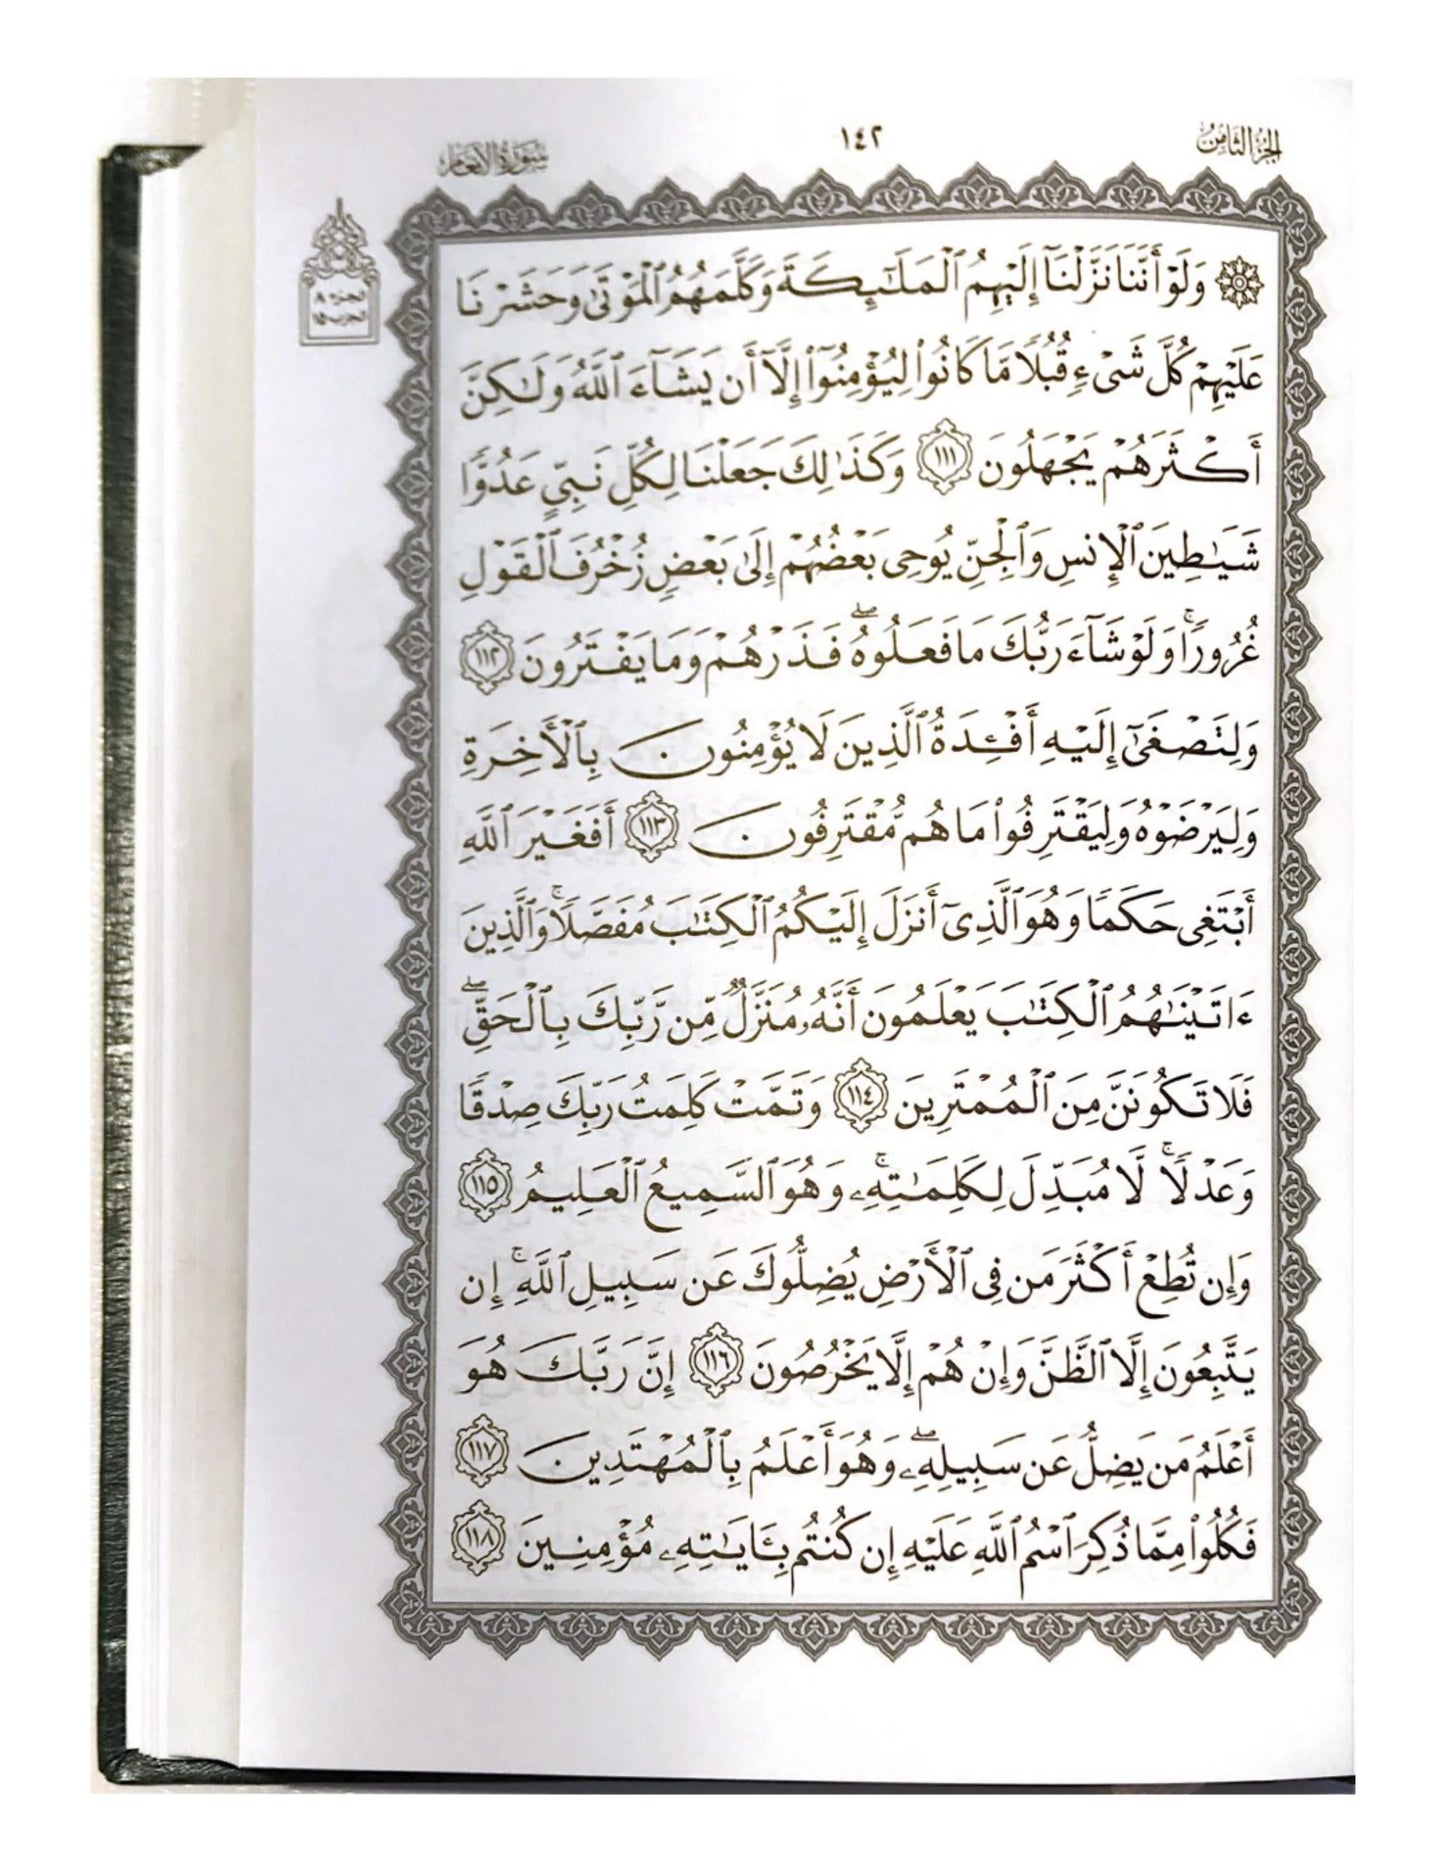 الجزء الثامن
١٤٢
سورة الأنعام
الجزء ٨
الحزب ١٥
۞ وَلَوْ أَنَّنَا نَزَّلْنَآ إِلَيْهِمُ ٱلْمَلَٰٓئِكَةَ وَكَلَّمَهُمُ ٱلْمَوْتَىٰ وَحَشَرْنَا
عَلَيْهِمْ كُلَّ شَىْءٍ قُبُلًا مَّا كَانُوا۟ لِيُؤْمِنُوٓا۟ إِلَّآ أَن يَشَآءَ ٱللَّهُ وَلَٰكِنَّ
أَكْثَرَهُمْ يَجْهَلُونَ ١١١ وَكَذَٰلِكَ جَعَلْنَا لِكُلِّ نَبِىٍّ عَدُوًّا
شَيَٰطِينَ ٱلْإِنسِ وَٱلْجِنِّ يُوحِى بَعْضُهُمْ إِلَىٰ بَعْضٍ زُخْرُفَ ٱلْقَوْلِ
غُرُورًا ۚ وَلَوْ شَآءَ رَبُّكَ مَا فَعَلُوهُ ۖ فَذَرْهُمْ وَمَا يَفْتَرُونَ ١١٢
وَلِتَصْغَىٰٓ إِلَيْهِ أَفْـِٔدَةُ ٱلَّذِينَ لَا يُؤْمِنُونَ بِٱلْأَخِرَةِ
وَلِيَرْضَوْهُ وَلِيَقْتَرِفُوا۟ مَا هُم مُّقْتَرِفُونَ ١١٣ أَفَغَيْرَ ٱللَّهِ
أَبْتَغِى حَكَمًا وَهُوَ ٱلَّذِىٓ أَنزَلَ إِلَيْكُمُ ٱلْكِتَٰبَ مُفَصَّلًا ۚ وَٱلَّذِينَ
ءَاتَيْنَٰهُمُ ٱلْكِتَٰبَ يَعْلَمُونَ أَنَّهُۥ مُنَزَّلٌ مِّن رَّبِّكَ بِٱلْحَقِّ ۖ
فَلَا تَكُونَنَّ مِنَ ٱلْمُمْتَرِينَ ١١٤ وَتَمَّتْ كَلِمَتُ رَبِّكَ صِدْقًا
وَعَدْلًا ۚ لَّا مُبَدِّلَ لِكَلِمَٰتِهِۦ ۚ وَهُوَ ٱلسَّمِيعُ ٱلْعَلِيمُ ١١٥
وَإِن تُطِعْ أَكْثَرَ مَن فِى ٱلْأَرْضِ يُضِلُّوكَ عَن سَبِيلِ ٱللَّهِ ۚ إِن
يَتَّبِعُونَ إِلَّا ٱلظَّنَّ وَإِنْ هُمْ إِلَّا يَخْرُصُونَ ١١٦ إِنَّ رَبَّكَ هُوَ
أَعْلَمُ مَن يَضِلُّ عَن سَبِيلِهِۦ ۖ وَهُوَ أَعْلَمُ بِٱلْمُهْتَدِينَ ١١٧
فَكُلُوا۟ مِمَّا ذُكِرَ ٱسْمُ ٱللَّهِ عَلَيْهِ إِن كُنتُم بِـَٔايَٰتِهِۦ مُؤْمِنِينَ ١١٨